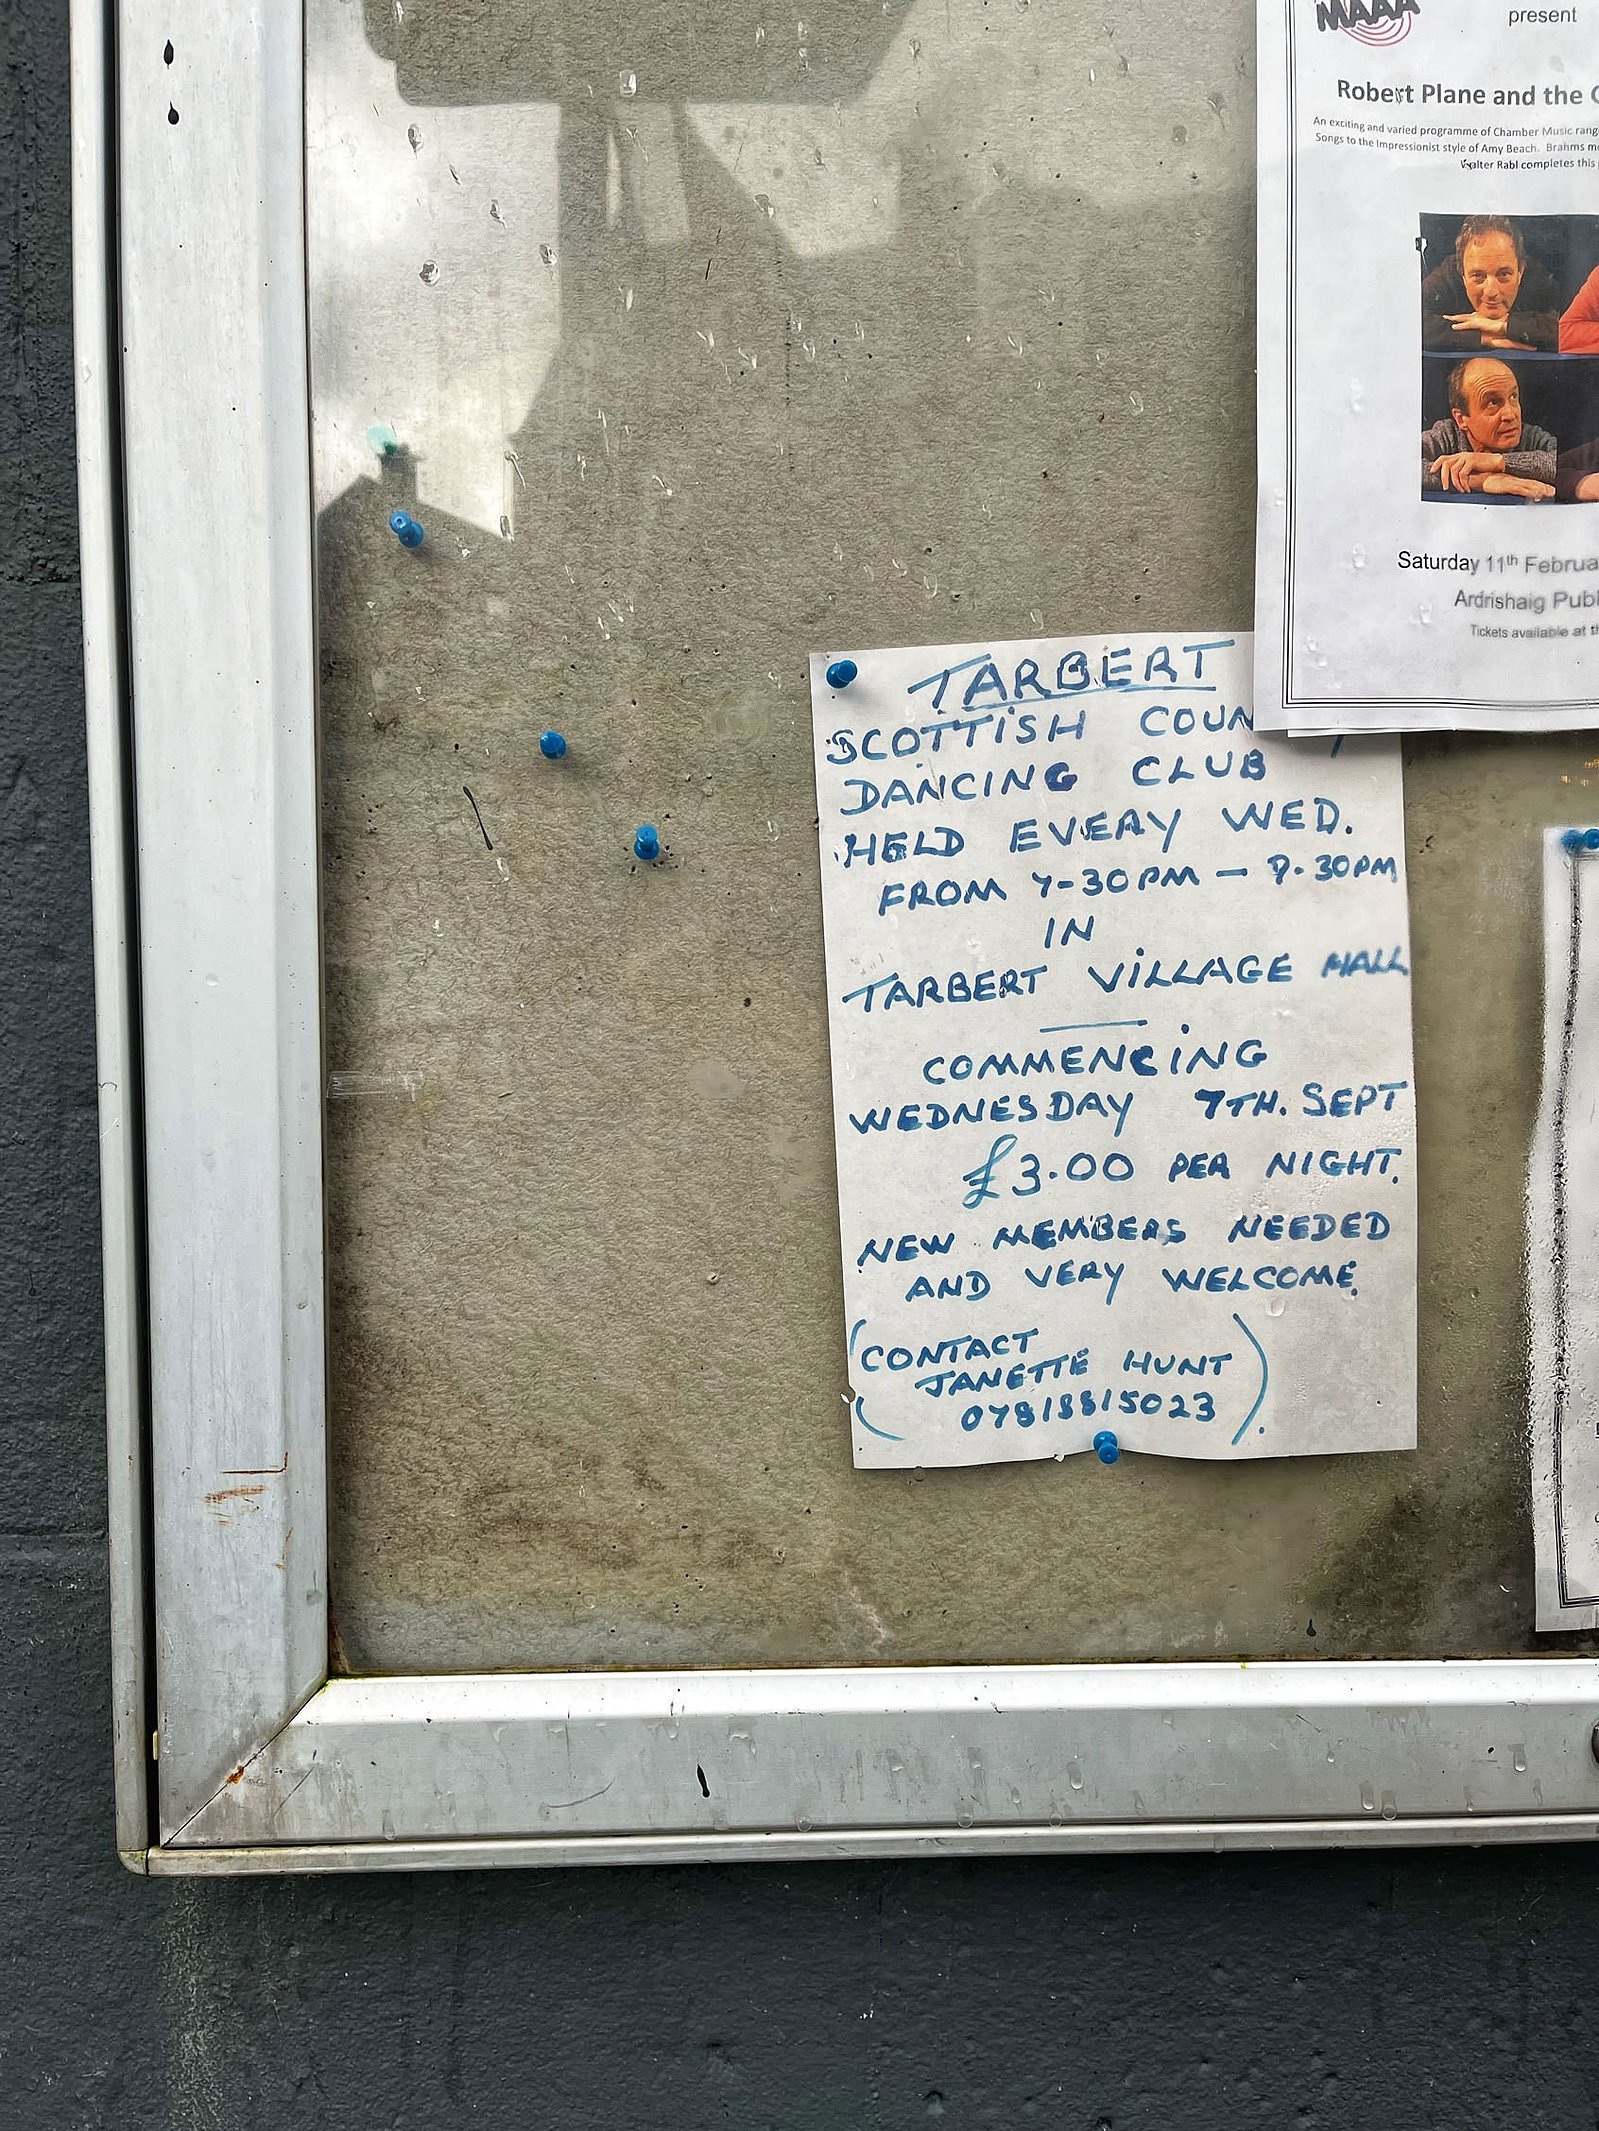 MAAA
present
Robert Plane and the
An exciting and varied programme of Chamber Music
Songs to the Impressionist style of Amy Beach. Brahms
Walter Rabl completes this
Saturday 11th
Ardrishaig
Tickets available at
TARBERT
SCOTTISH COUN
DANCING CLUB
HELD EVERY WED.
FROM 7-30PM – 9.30PM
IN
TARBERT VILLAGE HALL
COMMENCING
WEDNESDAY 7TH. SEPT
£3.00 PER NIGHT.
NEW MEMBERS NEEDED
AND VERY WELCOME.
(CONTACT
JANETTE HUNT